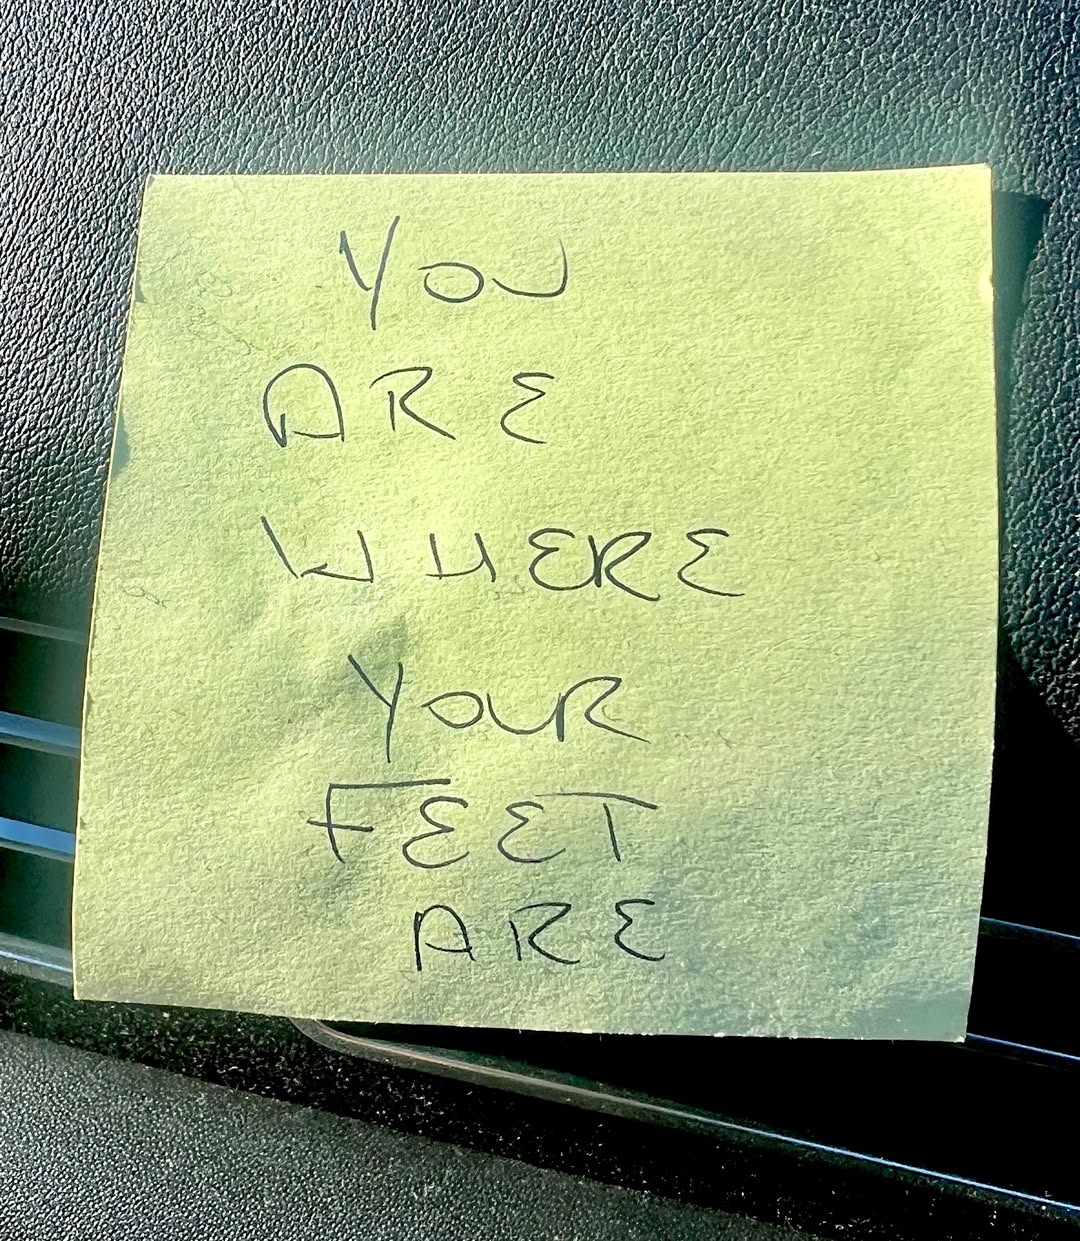 YOU
ARE
WHERE
YOUR
FEET
ARE